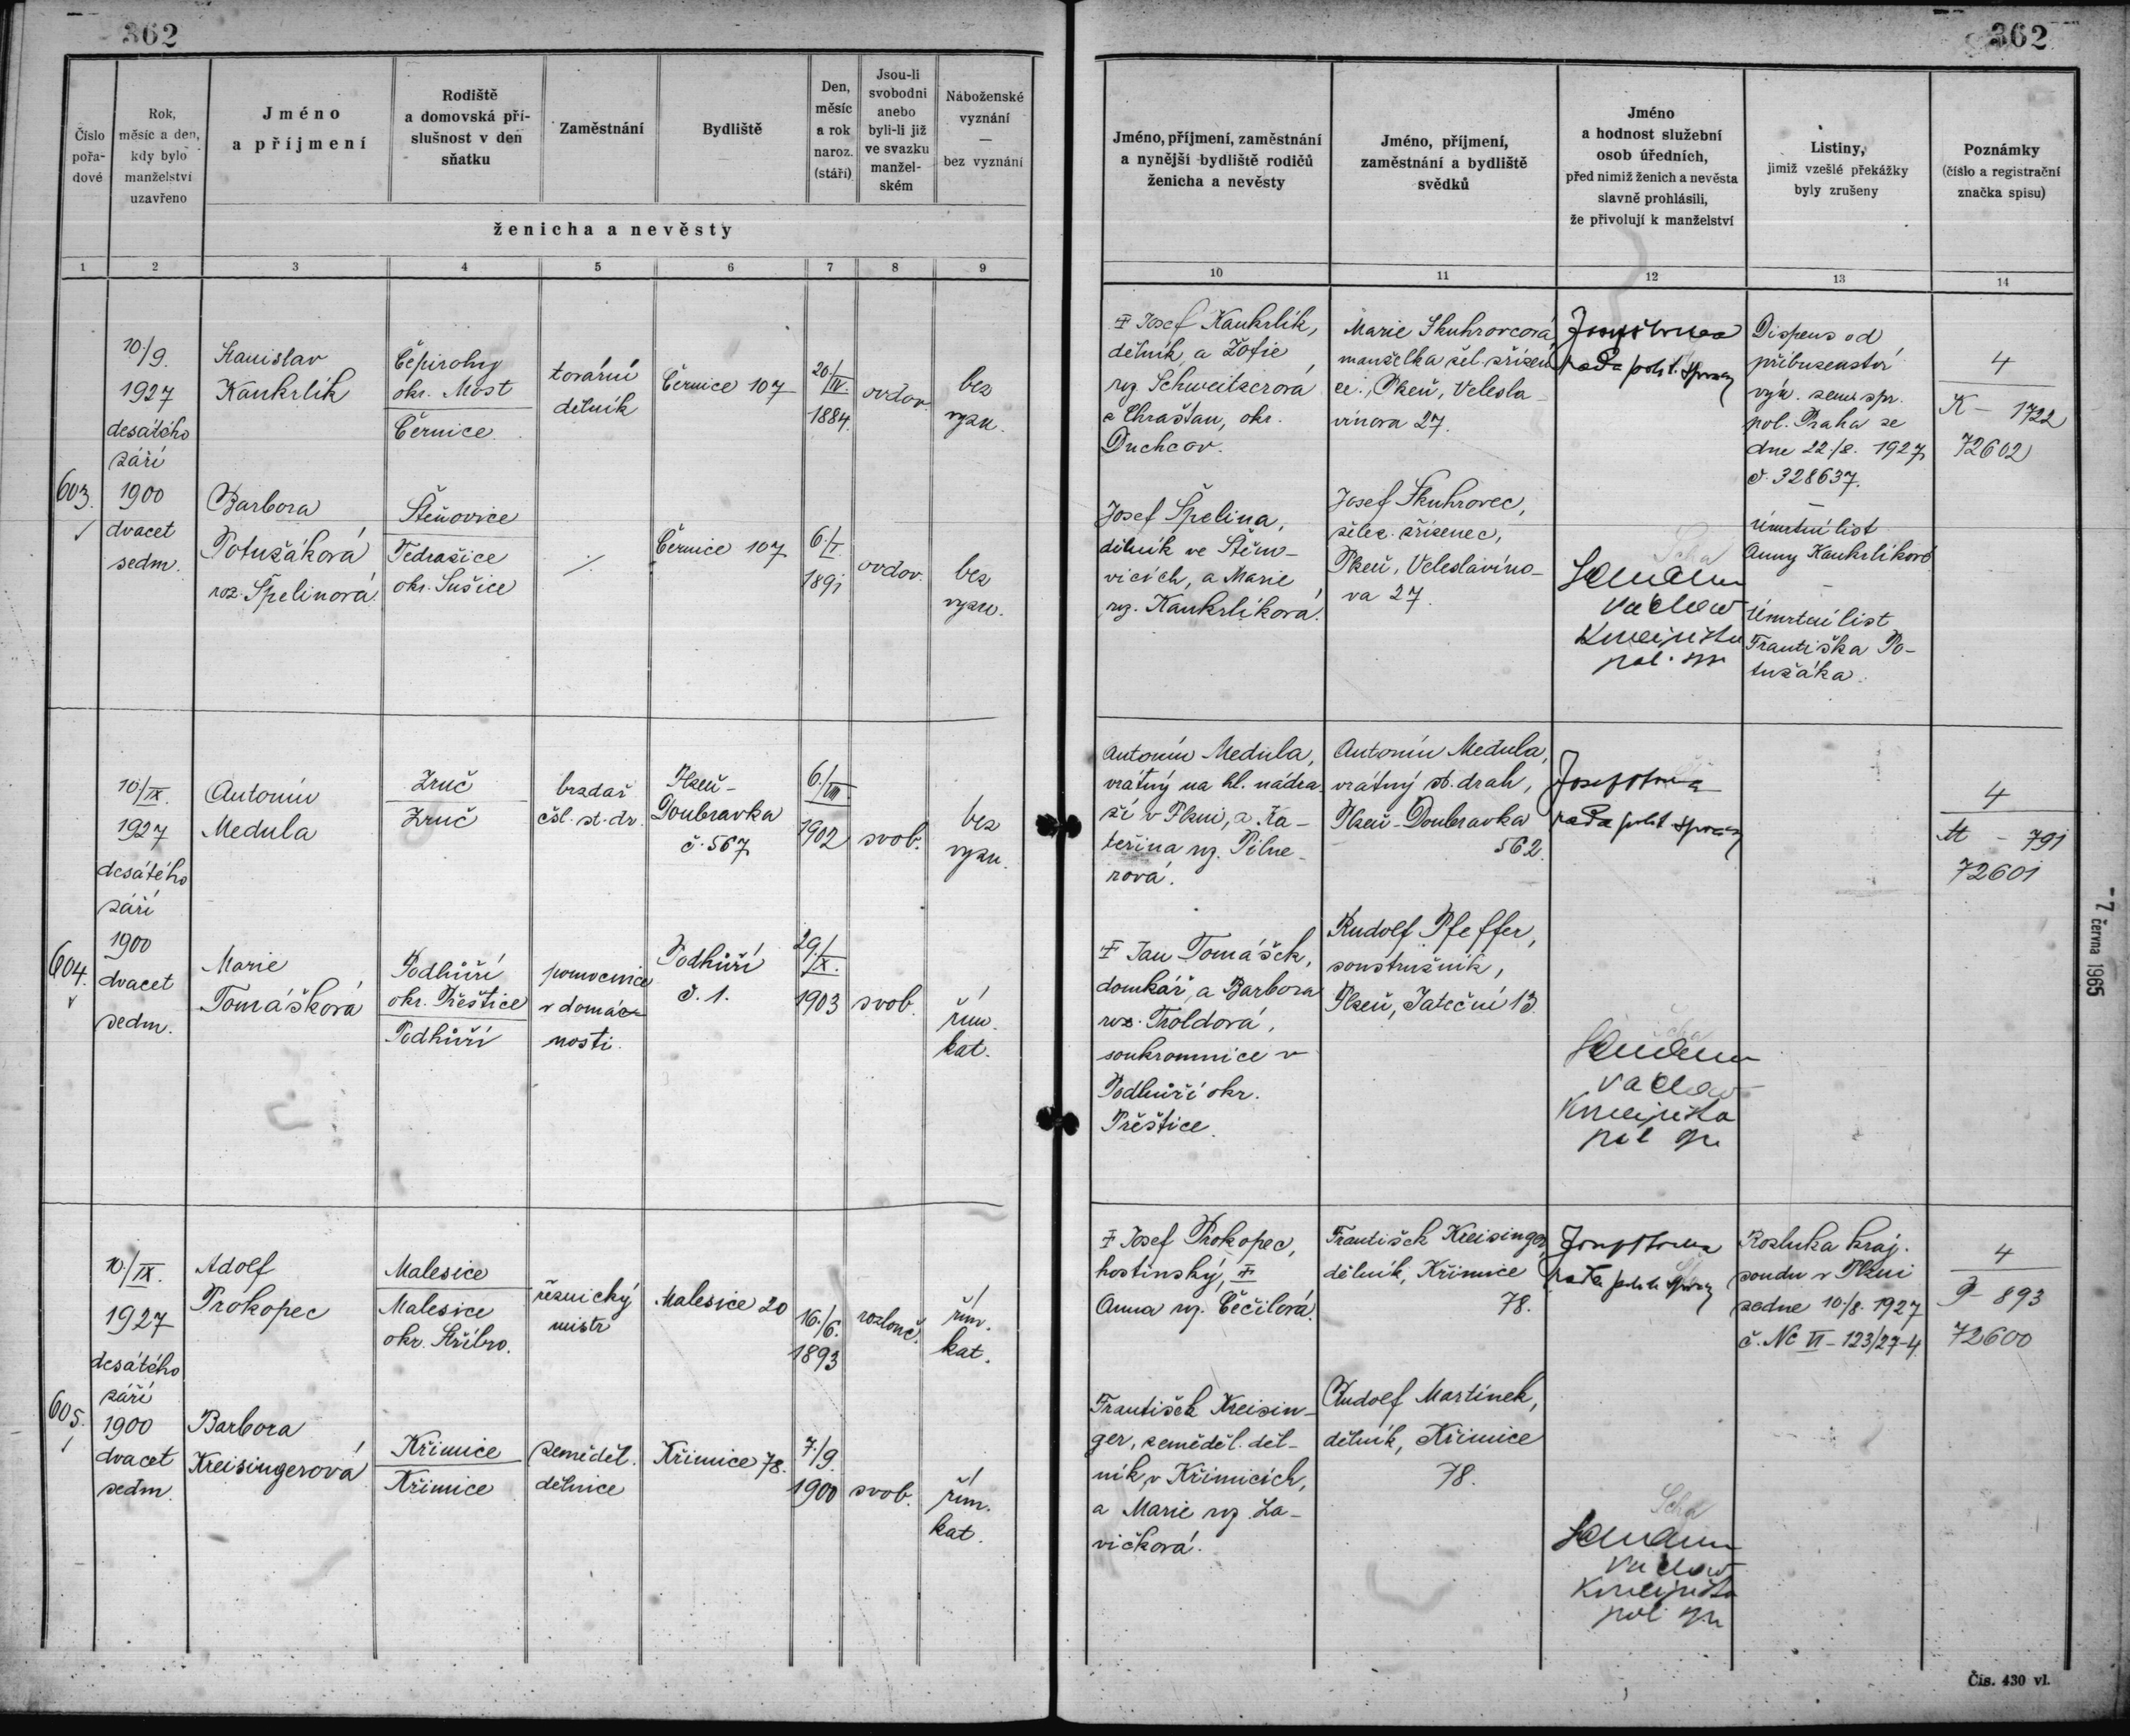 362
362
Číslo pořa-dové
Rok, měsíc a den, kdy bylo manželství uzavřeno
Jméno a příjmení
Rodiště a domovská pří-slušnost v den sňatku
Zaměstnání
Bydliště
Den, měsíc a rok naroz. (stáří)
Jsou-li svobodni anebo byli-li již ve svazku manžel-ském
Náboženské vyznání — bez vyznání
ženicha a nevěsty
Jméno, příjmení, zaměstnání a nynější bydliště rodičů ženicha a nevěsty
Jméno, příjmení, zaměstnání a bydliště svědků
Jméno a hodnost služební osob úředních, před nimiž ženich a nevěsta slavně prohlásili, že přivolují k manželství
Listiny, jimiž vzešlé překážky byly zrušeny
Poznámky (číslo a registrační značka spisu)
1 2 3 4 5 6 7 8 9 10 11 12 13 14
603.
10./9.
1927
desátého
září
1900
dvacet
sedm.
Stanislav
Kaukrlík
Čepirohy
okr. Most
Černice
tovární
dělník
Černice 107
20./IV.
1884.
ovdov.
bez
vyzn.
Barbora
Potužáková
roz. Špelinová.
Štěňovice
Tedražice
okr. Sušice
Černice 107
6./I.
1891
ovdov.
bez
vyzn.
‡ Josef Kaukrlík,
dělník, a Žofie
rz. Schweitzerová
z Chrašťan, okr.
Duchcov.
Josef Špelina,
dělník ve Štěno-
vicích, a Marie
rz. Kaukrlíková.
Marie Skuhrovcová
manželka žel. zřízen
ce., Plzeň, Velesla-
vínova 27.
Josef Skuhrovec,
želez. zřízenec,
Plzeň, Veleslavíno-
va 27.
rada polit. správy
Václav
Dispens od
příbuzenství
výn. zems. spr.
pol. Praha ze
dne 22./8. 1927
č. 328637.
—
Úmrtní list
Anny Kaukrlíkové
—
Úmrtní list
Františka Po-
tužáka.
4
K - 1722
72602
604.
10./IX.
1927
desátého
září
1900
dvacet
sedm.
Antonín
Medula
Zruč
Zruč
brzdař
čsl. st. dr.
Plzeň-
Doubravka
č. 567
6./VIII.
1902
svob.
bez
vyzn.
Marie
Tomášková
Podhůří
okr. Přeštice
Podhůří
pomocnice
v domác-
nosti.
Podhůří
č. 1.
29./X.
1903
svob.
řím.
kat.
Antonín Medula,
vrátný na hl. nádra-
ží v Plzni, a Ka-
teřina rz. Pilne-
rová.
‡ Jan Tomášek,
domkář, a Barbora
roz. Troldová,
soukromnice v
Podhůří okr.
Přeštice.
Antonín Medula,
vrátný st. drah,
Plzeň-Doubravka
562.
Rudolf Pfeffer,
soustružník,
Plzeň, Jateční 13.
rada polit správy
Václav
4
M - 791
72601
605.
10./IX.
1927
desátého
září
1900
dvacet
sedm.
Adolf
Prokopec
Malesice
Malesice
okr. Stříbro.
řeznický
mistr
Malesice 20
16./6.
1893
rozlouč.
řím.
kat.
Barbora
Kreisingerová
Křimice
Křimice
zeměděl.
dělnice
Křimice 78.
7./9.
1900
svob.
řím.
kat.
‡ Josef Prokopec,
hostinský, ‡
Anna rz. Čečilová.
František Kreisin-
ger, zeměděl. děl-
ník v Křimicích,
a Marie rz. La-
vičková.
František Kreisinger,
dělník, Křimice
78.
Rudolf Martínek,
dělník, Křimice
78.
rada polit. správy
Václav
Rozluka kraj.
soudu v Plzni
ze dne 10./8. 1927
č. Nc VI - 123/27-4.
4
P - 893
72600
- 7 června 1965
Čís. 430 vl.